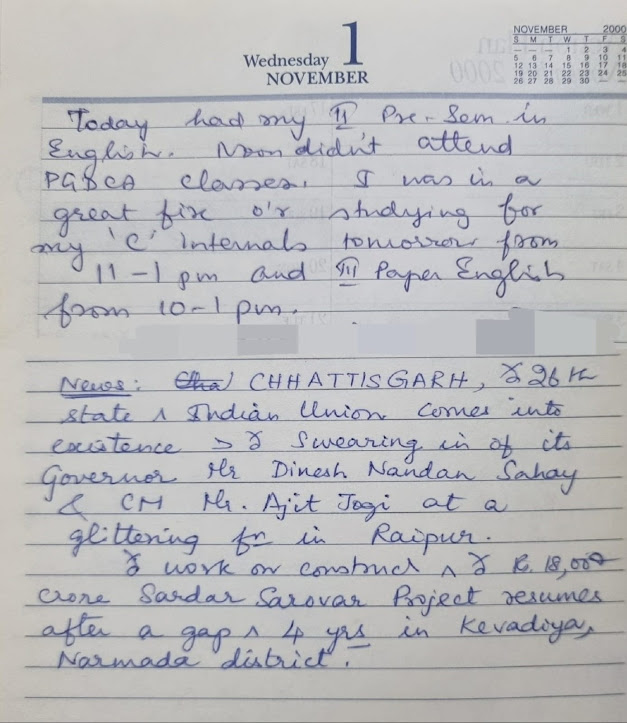 Wednesday 1
NOVEMBER
NOVEMBER 2000
S M T W T F S
— — — 1 2 3 4
5 6 7 8 9 10 11
12 13 14 15 16 17 18
19 20 21 22 23 24 25
26 27 28 29 30 — —
Today had my II Pre-Sem in
English. Noon didn't attend
PGDCA classes. I was in a
great fix o'r studying for
my 'C' Internals tomorrow from
11-1 pm and III Paper English
from 10-1 pm.
News: CHHATTISGARH, 26th
state Indian Union comes into
existence Swearing in of its
Governor Mr Dinesh Nandan Sahay
& CM Mr. Ajit Jogi at a
glittering fn in Raipur.
work on construcn Rs. 18,000
crore Sardar Sarovar Project resumes
after a gap 4 yrs in Kevadiya,
Narmada district.